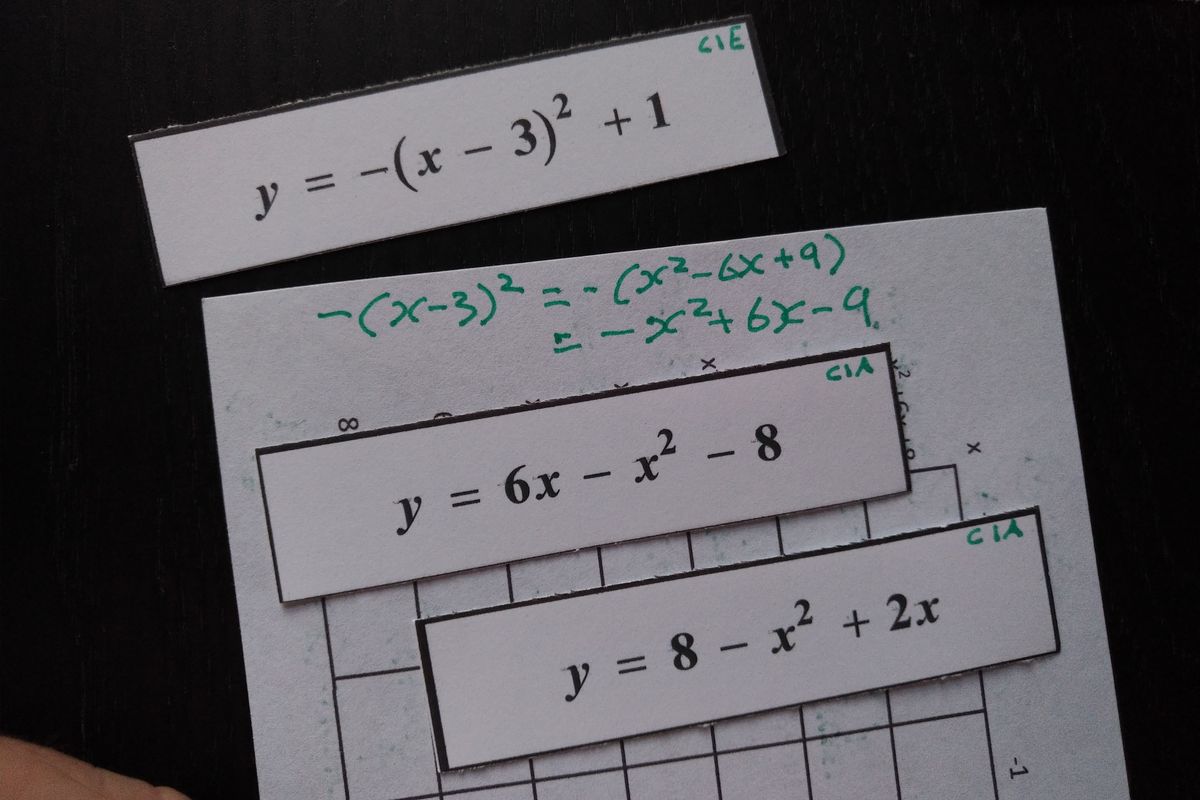 C1E
y = -(x - 3)² + 1
-(x-3)² = -(x²-6x+9)
= -x²+6x-9
C1A
y = 6x - x² - 8
x
x
8
C1A
y = 8 - x² + 2x
-1